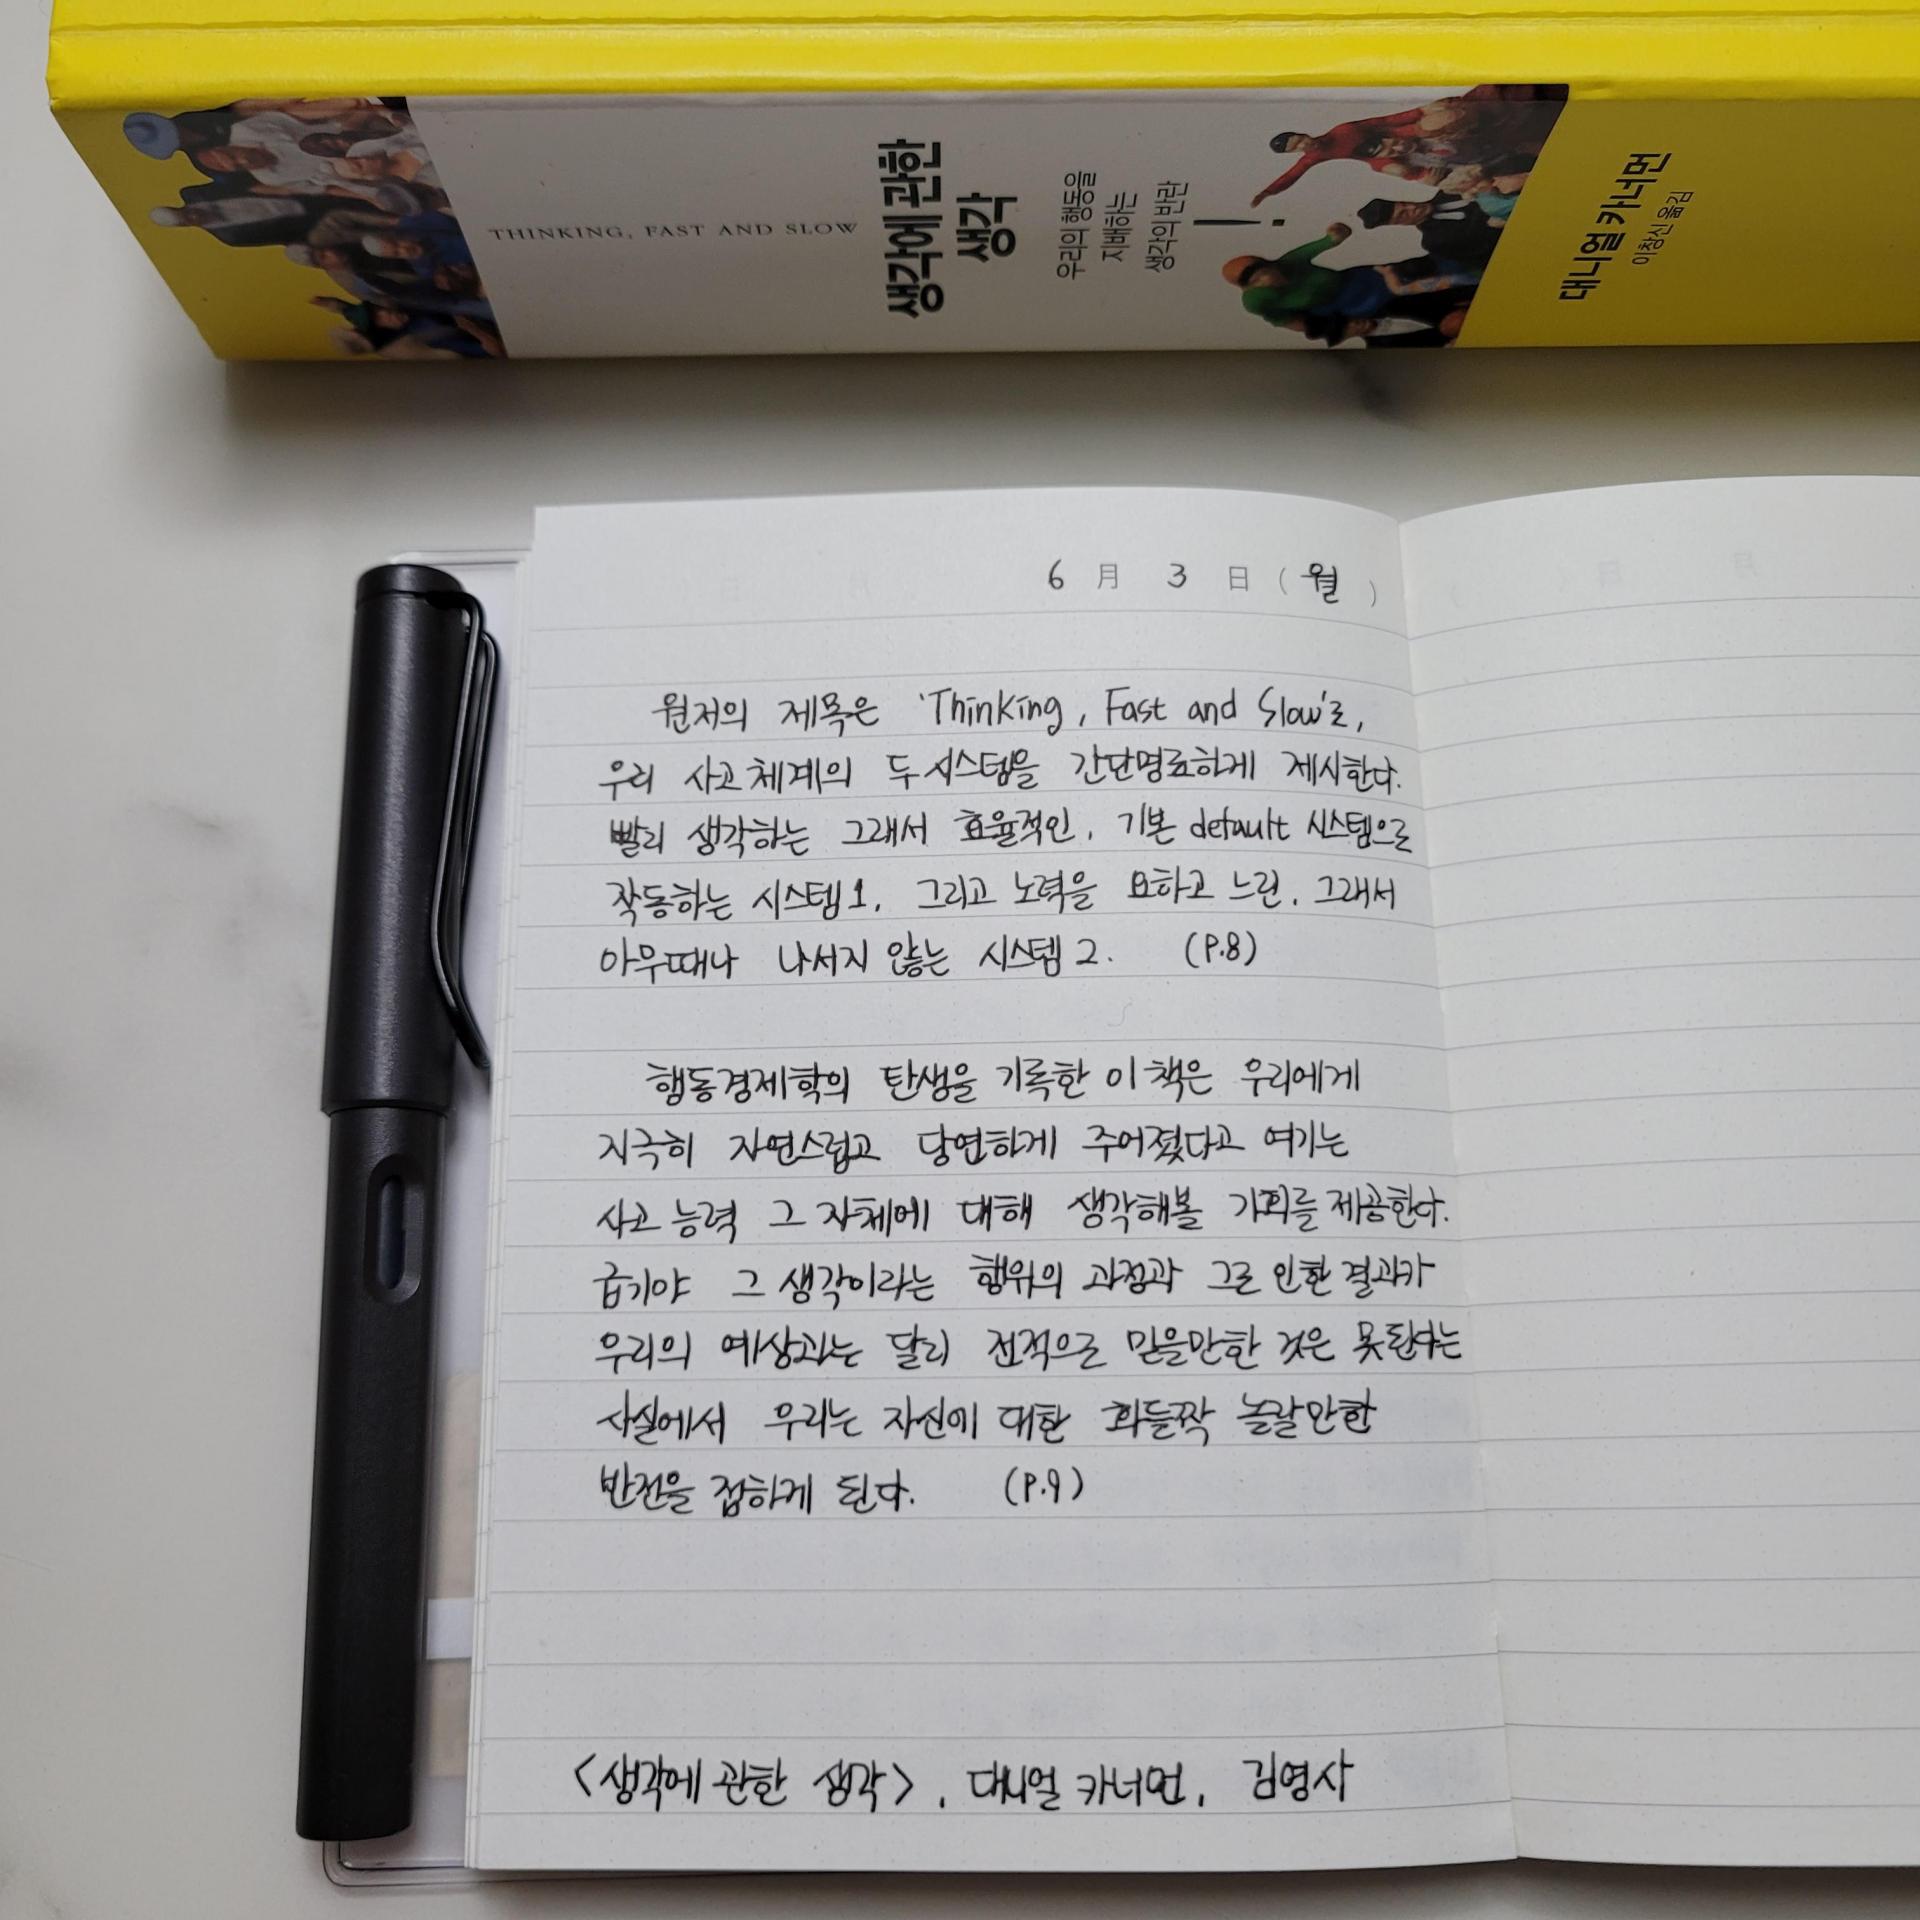 THINKING, FAST AND SLOW
생각에 관한
생각
우리의 행동을
지배하는
생각의 반란!
대니얼 카너먼
이창신 옮김
6 月 3 日 (월)
원저의 제목은 'Thinking, Fast and Slow'로,
우리 사고체계의 두 시스템을 간단명료하게 제시한다.
빨리 생각하는 그래서 효율적인, 기본 default 시스템으로
작동하는 시스템1, 그리고 노력을 요하고 느린, 그래서
아무때나 나서지 않는 시스템2. (P.8)
행동경제학의 탄생을 기록한 이 책은 우리에게
지극히 자연스럽고 당연하게 주어졌다고 여기는
사고 능력 그 자체에 대해 생각해볼 기회를 제공한다.
급기야 그 생각이라는 행위의 과정과 그로 인한 결과가
우리의 예상과는 달리 전적으로 믿을만한 것은 못된다는
사실에서 우리는 자신에 대한 화들짝 놀랄만한
반전을 접하게 된다. (P.9)
<생각에 관한 생각>, 대니얼 카너먼, 김영사